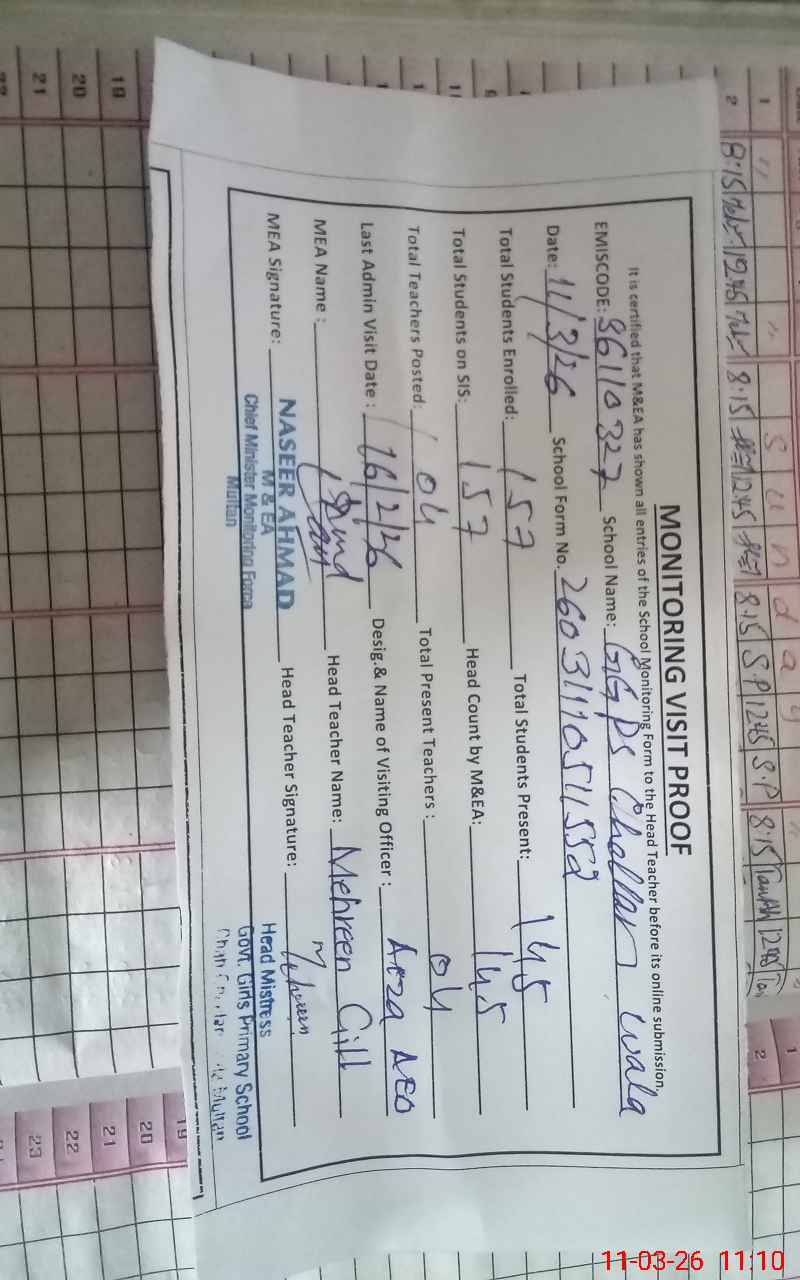 MONITORING VISIT PROOF
It is certified that M&EA has shown all entries of the School Monitoring Form to the Head Teacher before its online submission.
EMISCODE: 36110327 School Name: GGPS Chollan wala
Date: 11/3/26 School Form No. 
Total Students Enrolled: 157 Total Students Present: 145
Total Students on SIS: 157 Head Count by M&EA: 145
Total Teachers Posted: 04 Total Present Teachers: 04
Last Admin Visit Date: 16/2/26 Desig.& Name of Visiting Officer: AEO
MEA Name: Head Teacher Name: Mehreen Gill
MEA Signature: Head Teacher Signature: Mehreen
NASEER AHMAD
M & EA
Chief Minister Monitoring Force
Multan
Head Mistress
Govt. Girls Primary School
Multan
Sunday
8:15 12:45 8:15 12:45 8:15 S.P 12:45 S.P 8:15
1
2
19
20
21
22
1
2
19
20
21
22
23
11-03-26 11:10